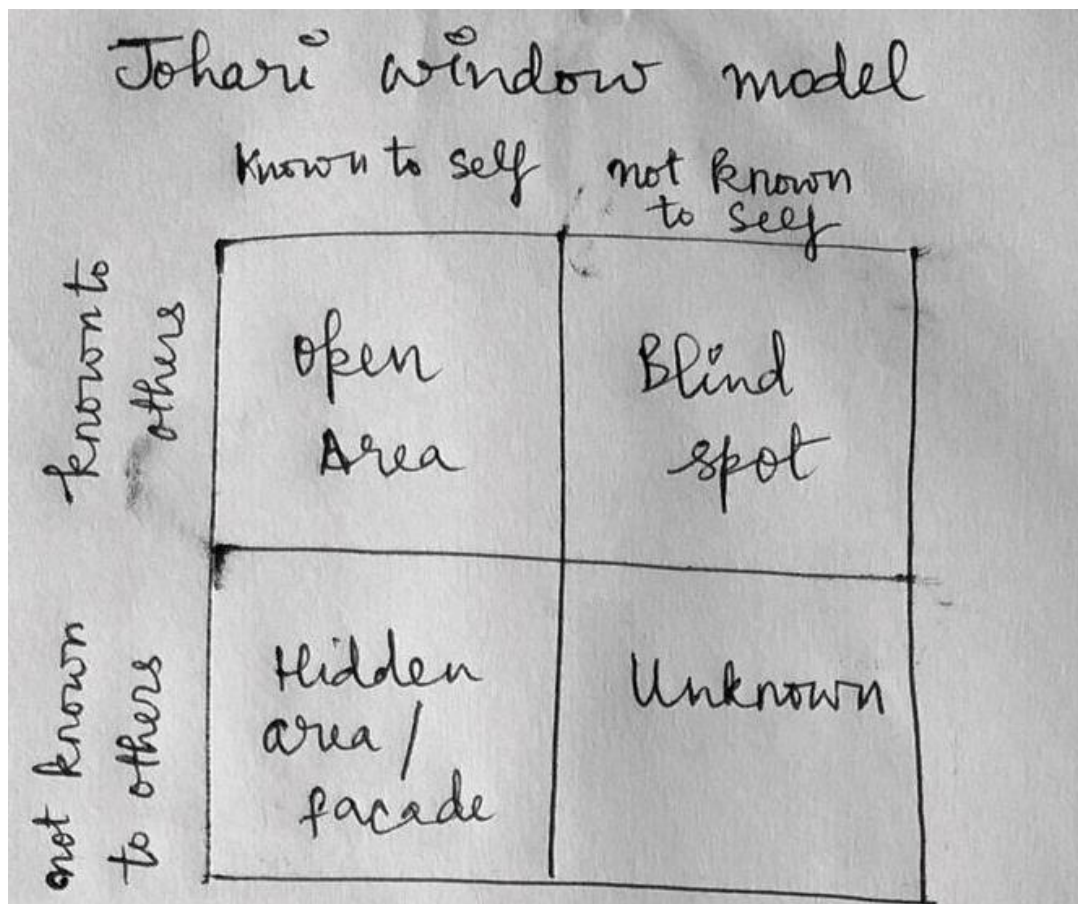 Johari window model
Known to self
not known
to self
known to
others
Open
Area
Blind
spot
not known
to others
Hidden
area /
facade
Unknown